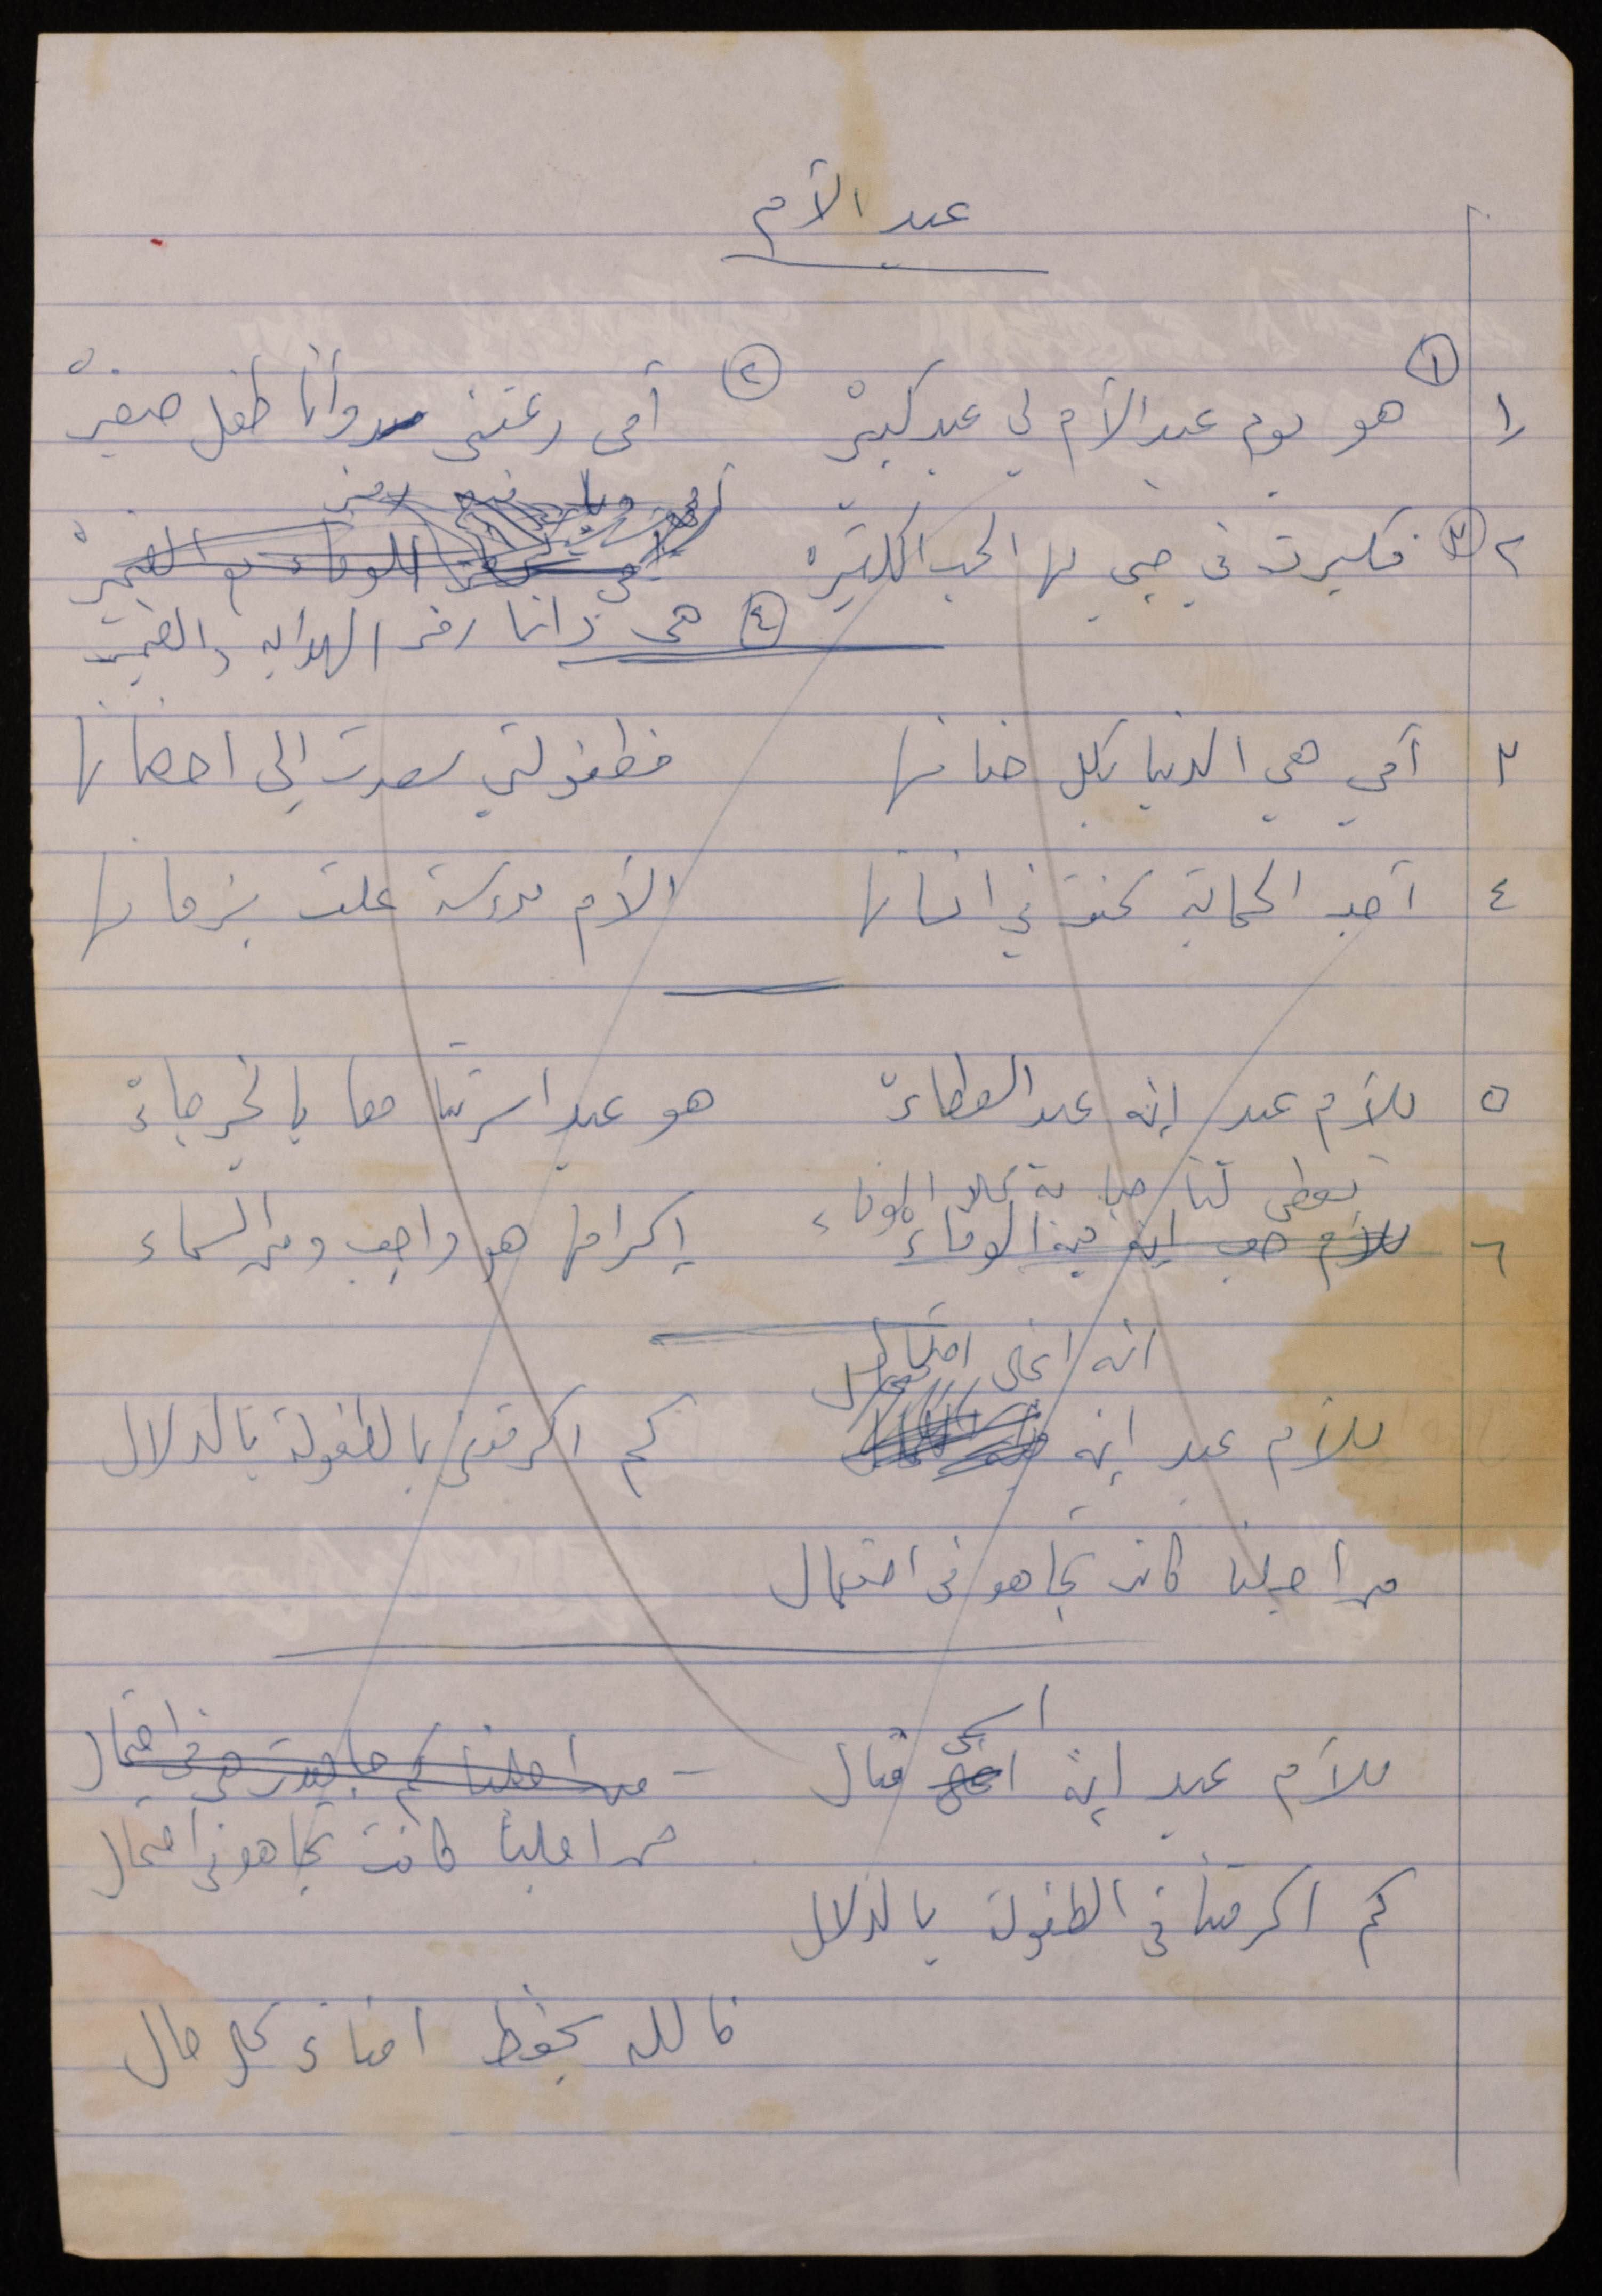 عيد الأم
١ ① هو يوم عيد الأم لي عيد كبيرْ ② أمي رعتني وأنا طفل صغيرْ
٢ ③ فكبرت في حبي لها الحب الكثيرْ
④ هي دائما رمز الهدايه والضمير
٣ أمي هي الدنيا بكل حنانها فطفولتي سعدت إلى احضانها
٤ أجد الحماية كنت في انسانها الأم مدرسة علت بزمانها
٥ للأم عيد إنه عيد العطاءْ هو عيد اسرتنا معا بالخير جاءْ
تعطى لنا حبا به كل الوفاء
٦ للأم حب إنه فيه الوفاء إكرامها هو واجب ومن السماء
انه اغلى احتفال
للأم عيد إنه كم اكرمتني بالطفولة بالدلال
من اجلنا كانت تجاهد في احتمال
اسمى
للأم عيد إنه مثال - من اجلنا كم جاهدت هي في احتمال
من اجلنا كانت تجاهد في احتمال
كم اكرمتنا في الطفولة بالدلال
فالله يحفظ امنا في كل حال